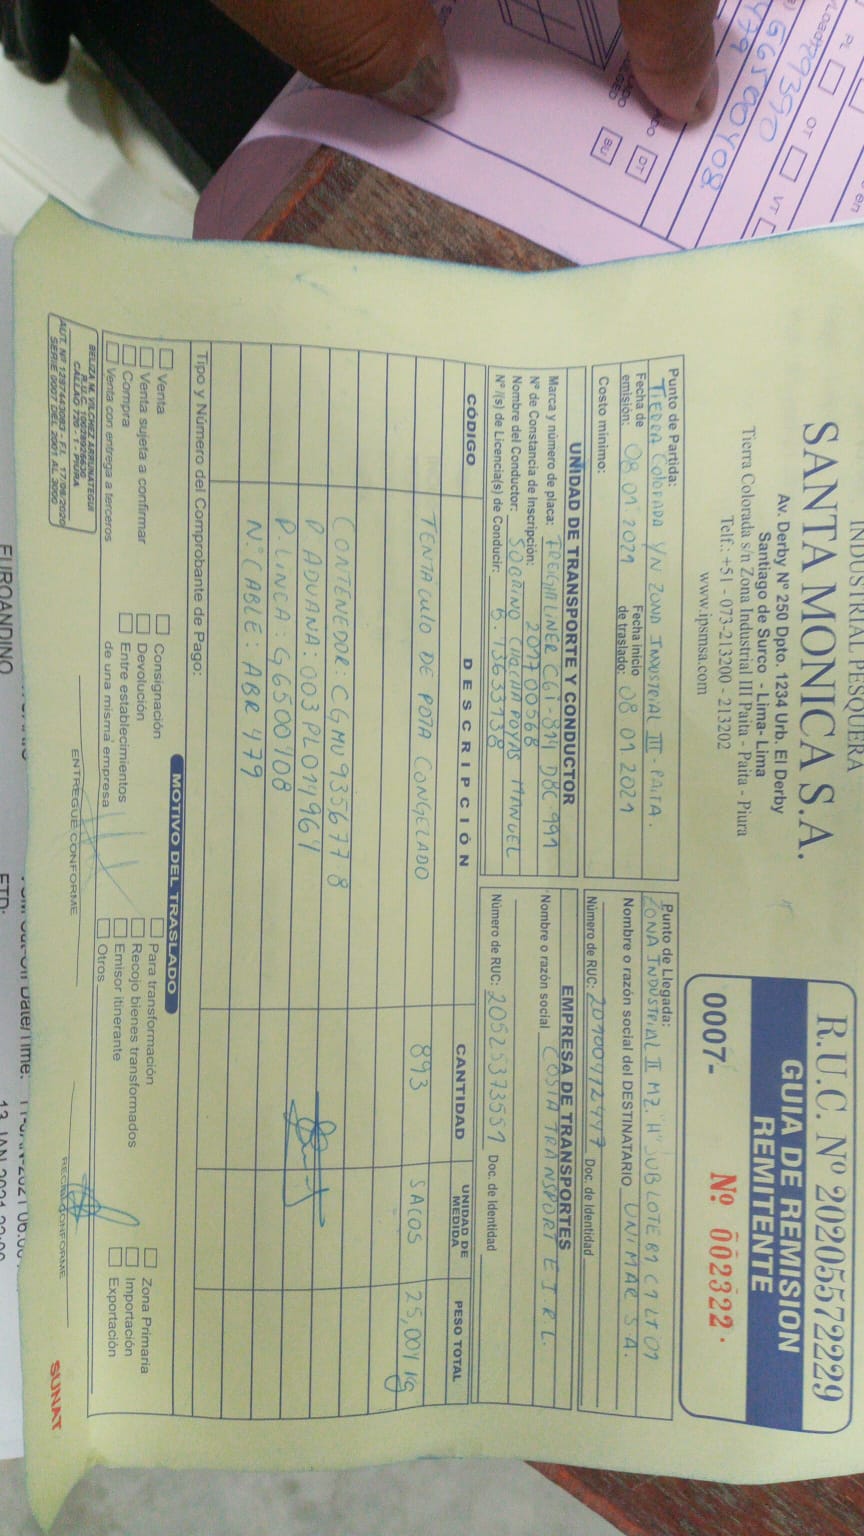 INDUSTRIAL PESQUERA
SANTA MONICA S.A.
Av. Derby Nº 250 Dpto. 1234 Urb. El Derby
Santiago de Surco - Lima- Lima
Tierra Colorada s/n Zona Industrial III Paita - Paita - Piura
Telf.: +51 - 073-213200 - 213202
www.ipsmsa.com
R.U.C. Nº 20205572229
GUIA DE REMISION
REMITENTE
0007- Nº 002322
Punto de Partida:
TIERRA COLORADA S/N ZONA INDUSTRIAL III - PAITA.
Fecha de emisión: 08 01 2021 Fecha inicio de traslado: 08 01 2021
Costo mínimo:
Punto de Llegada:
ZONA INDUSTRIAL II MZ. "H" SUB LOTE B1 C1 LT 01
Nombre o razón social del DESTINATARIO UNIMAR S.A.
Número de RUC: 20100412447 Doc. de Identidad
UNIDAD DE TRANSPORTE Y CONDUCTOR
Marca y número de placa: FREIGHLINER C6I-814 D8C-991
Nº de Constancia de Inscripción: 201700568
Nombre del Conductor: SOBRINO CHACHAPOYAS MANUEL
Nº /(s) de Licencia(s) de Conducir: B-73633738
EMPRESA DE TRANSPORTES
Nombre o razón social COSTA TRANSPORT E I R L.
Número de RUC: 20525373551 Doc. de Identidad
CÓDIGO DESCRIPCIÓN CANTIDAD UNIDAD DE MEDIDA PESO TOTAL
TENTACULO DE POTA CONGELADO 893 SACOS 25,004 KG
CONTENEDOR: CGMU 935677 8
P ADUANA: 003 PL014961
P. LINEA: G6500408
N° CABLE: ABR 479
Tipo y Número del Comprobante de Pago:
MOTIVO DEL TRASLADO
Venta
Venta sujeta a confirmar
Compra
Venta con entrega a terceros
Consignación
Devolución
Entre establecimientos
de una misma empresa
Para transformación
Recojo bienes transformados
Emisor itinerante
Otros
Zona Primaria
Importación
Exportación
BELIZA M. VILCHEZ ARRUNATEGUI
CALLAO 720 - 1 - PIURA
SERIE 0007 DEL 2001 AL 3000
ENTREGUE CONFORME
RECIBI CONFORME
SUNAT
G6500408
479
PL
OT
VT
OT
BU
EUROANDINO
ETD:
13 JAN 2021